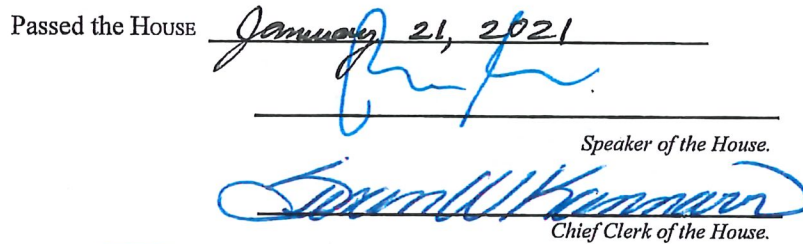 Passed the HOUSE January 21, 2021
Speaker of the House.
Susan W Kannarr
Chief Clerk of the House.